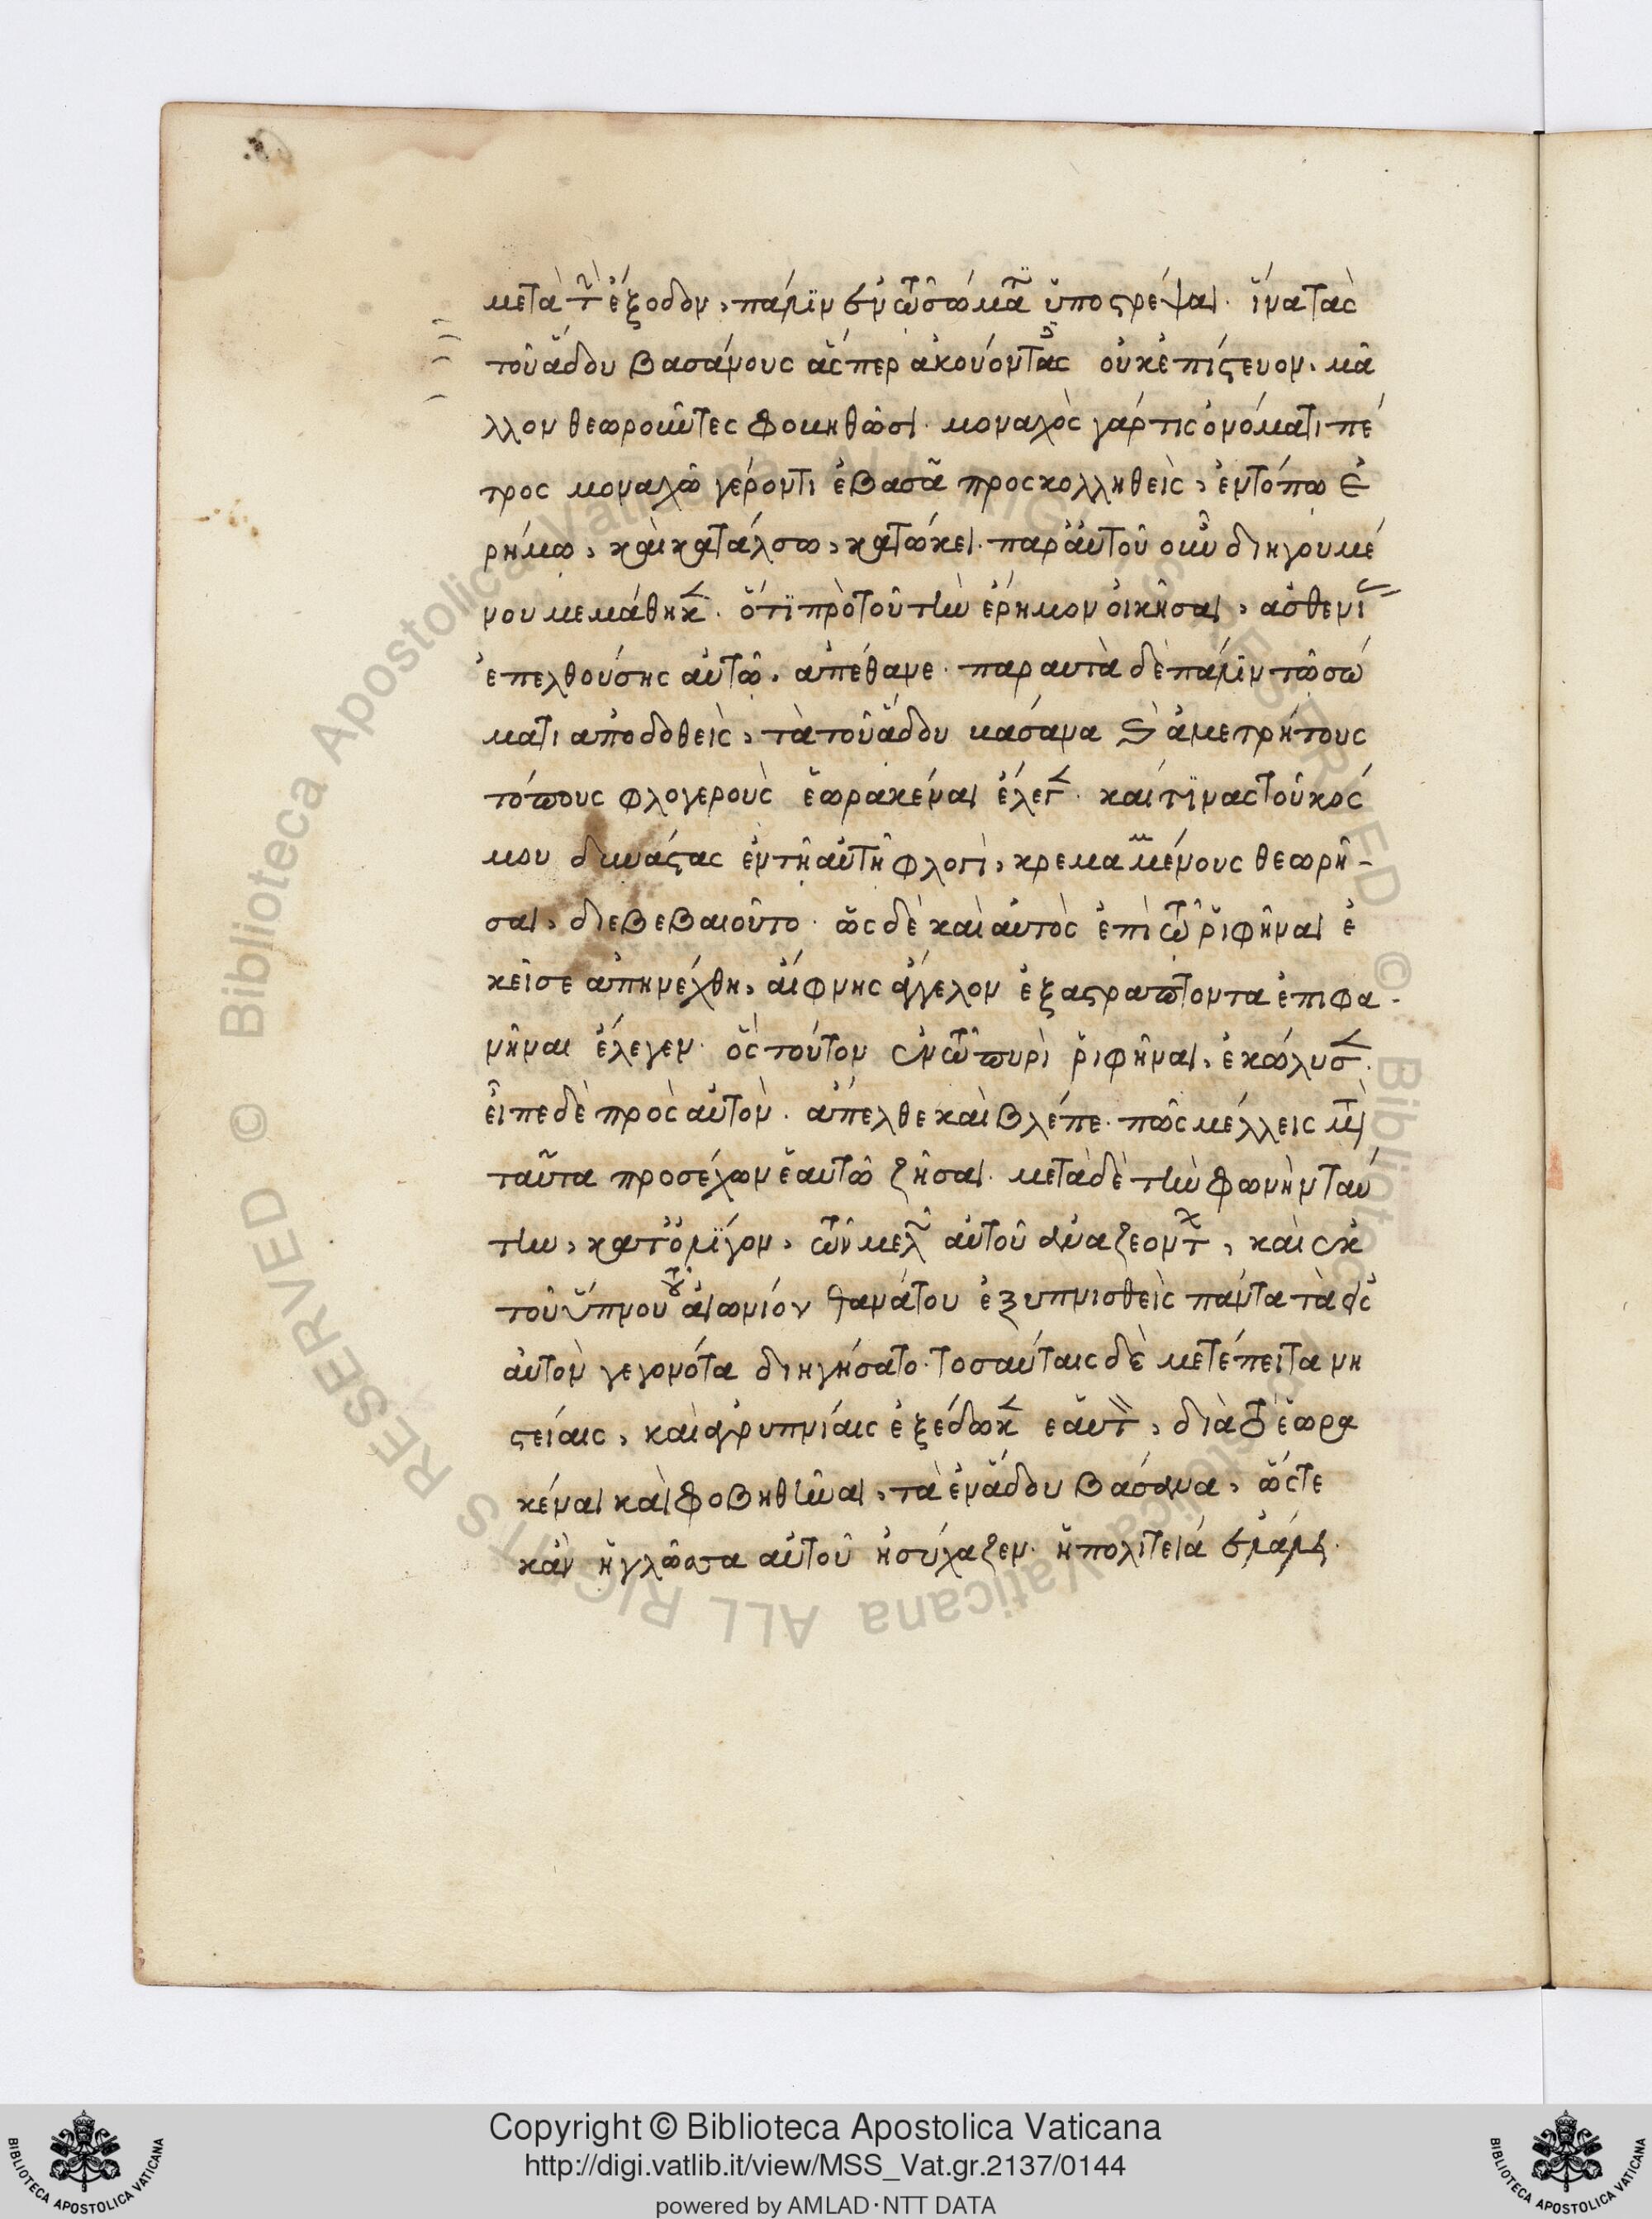 μετὰ τὴν ἔξοδον, πάλιν ἐν τῷ σώματι ὑποστρέψαι. ἵνα τὰς
τοῦ ἅδου βασάνους ἅσπερ ἀκούοντας οὐκ ἐπίστευον, μᾶ
λλον θεωροῦντες φοβηθῶσι. μοναχὸς γάρ τις ὀνόματι πέ
τρος μοναχῷ γέροντι ἐβασᾶ προσκολληθεὶς, ἐν τόπω ἐ
ρήμω, καὶ καταλσω, κατώκει. παρ' αὐτοῦ οὖν διηγουμέ
νου μεμάθηκα. ὅτι πρὸ τοῦ τὴν ἔρημον οἰκῆσαι, ἀσθενί
ἐπελθούσης αὐτῷ, ἀπέθανε. παραυτὰ δὲ πάλιν τῷ σώ
ματι ἀποδοθεὶς, τὰ τοῦ ἅδου βάσανα καὶ ἀμετρήτους
τόπους φλογεροὺς ἑωρακέναι ἔλεγε. καί τινας τοῦ κόσ
μου δυνάστας ἐν τῇ αὐτῇ φλογὶ, κρεμαμμένους θεωρῆ-
σαι, διεβεβαιοῦτο. ὡς δὲ καὶ αὐτὸς ἐπὶ τῷ ῥιφῆναι ἐ
κεῖσε ἀπηνέχθη, αἴφνης ἄγγελον ἐξαστράπτοντα ἐπιφα-
νῆναι ἔλεγεν. ὃς τοῦτον ἐν τῷ πυρὶ ῥιφῆναι, ἐκώλυσε.
εἶπε δὲ πρὸς αὐτὸν. ἄπελθε καὶ βλέπε. πῶς μέλλεις μετὰ
ταῦτα προσέχων ἑαυτῷ ζῆσαι. μετὰ δὲ τὴν φωνὴν ταύ
την, κατ' ὀλίγον, τῶν μελῶν αὐτοῦ ἀναζεόντων, καὶ ἐκ
τοῦ ὕπνου τοῦ αἰωνίου θανάτου ἐξυπνισθεὶς πάντα τὰ εἰς
αὐτὸν γεγονότα διηγήσατο. τοσαύταις δὲ μετέπειτα νη
στείαις, καὶ ἀγρυπνίαις ἐξέδωκε ἑαυτὸν, διὰ τὸ ἑωρα
κέναι καὶ φοβηθῆναι, τὰ ἐν ἅδου βάσανα, ὥστε
κἂν ἡ γλῶσσα αὐτοῦ ἡσύχαζεν. ἡ πολιτεία